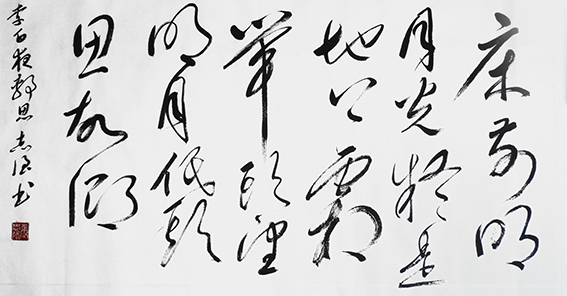 床前明
月光疑是
地上霜
举头望
明月低头
思故乡
李白夜静思 志浩书